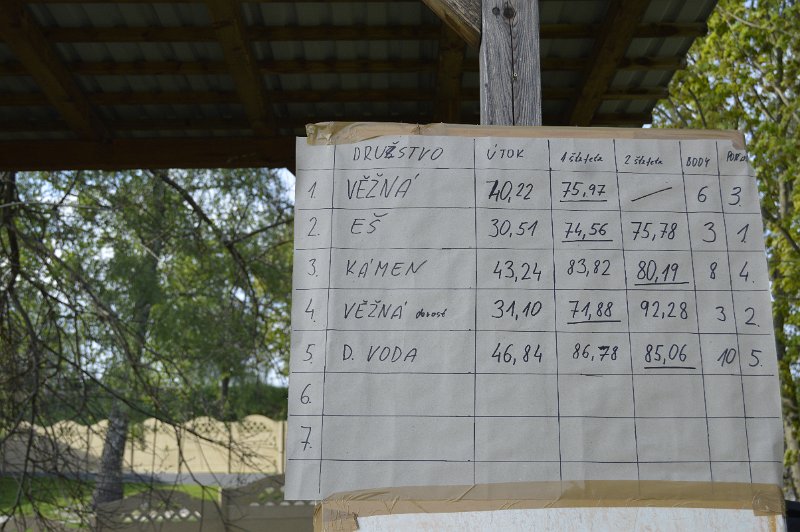 DRUŽSTVO ÚTOK 1 štafeta 2 štafeta BODY
1. VĚŽNÁ 40,22 75,97 — 6 3.
2. EŠ 30,51 74,56 75,78 3 1.
3. KÁMEN 43,24 83,82 80,19 8 4.
4. VĚŽNÁ dorost 31,10 71,88 92,28 3 2.
5. D. VODA 46,84 86,78 85,06 10 5.
6.
7.